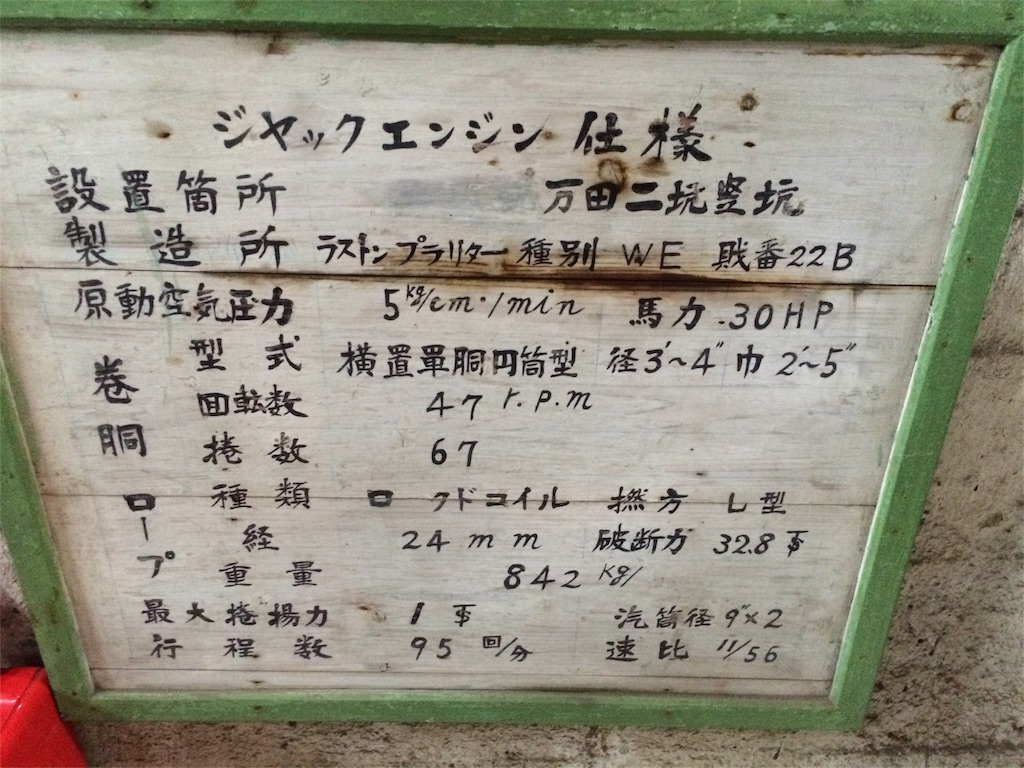 ジャックエンジン 仕様
設置箇所 万田二坑竪坑
製造所 ラストンプラリター 種別 WE 戝番22B
原動空気圧力 5kg/cm²/min 馬力 30HP
巻胴 型式 横置單胴円筒型 径3'~4" 巾2'~5"
回転数 47 r.p.m
捲数 67
ロープ 種類 ロックドコイル 撚方 L型
経 24mm 破断力 32.8
重量 842 kg/
最大捲揚力 1 汽筒径 9"×2
行程数 95 回/分 速比 11/56